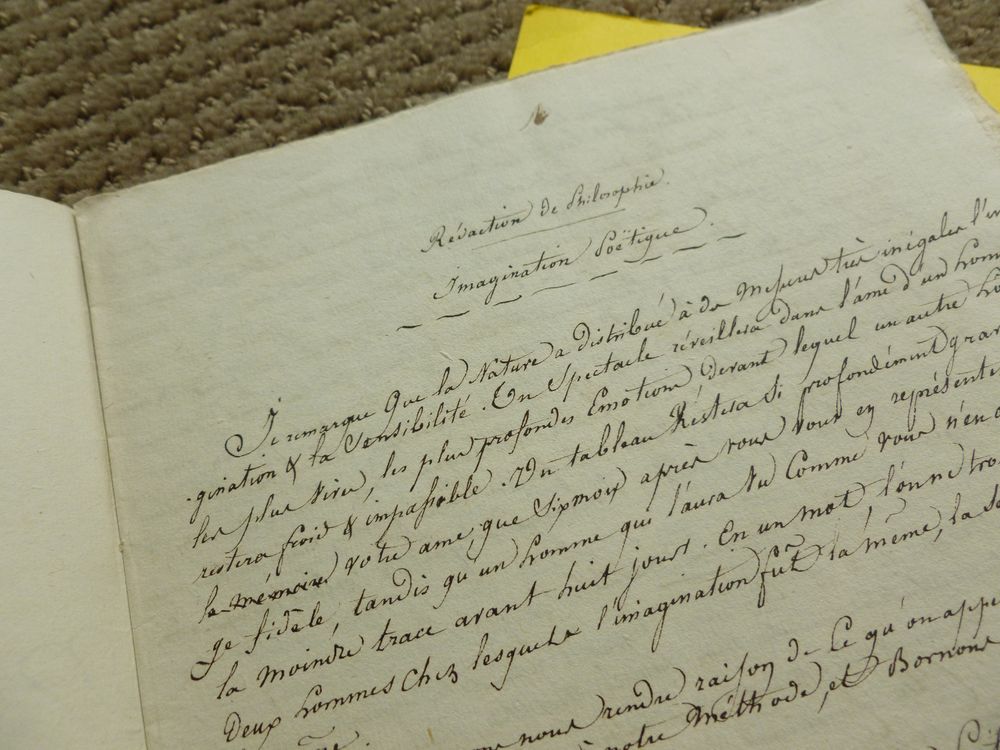 Rédaction de Philosophie.
Imagination Poëtique.
Je remarque que la Nature a distribué à des mesures très inégales l'
gination & la Sensibilité. Un Spectacle réveillera dans l'âme d'un hom
les plus vives, les plus profondes Emotions, devant lequel un autre ho
restera froid & impassible. Un tableau Restera si profondément grav
la mémoire votre ame, que Six mois après vous vous en représente
ge fidèle, tandis qu'un homme qui l'aura vu Comme vous n'en
la moindre trace avant huit jours. En un mot, l'on ne tro
Deux hommes Chez lesquels l'imagination fut la même, la se
nous rendre raison de Ce qu'on appe
notre Méthode et Bornons